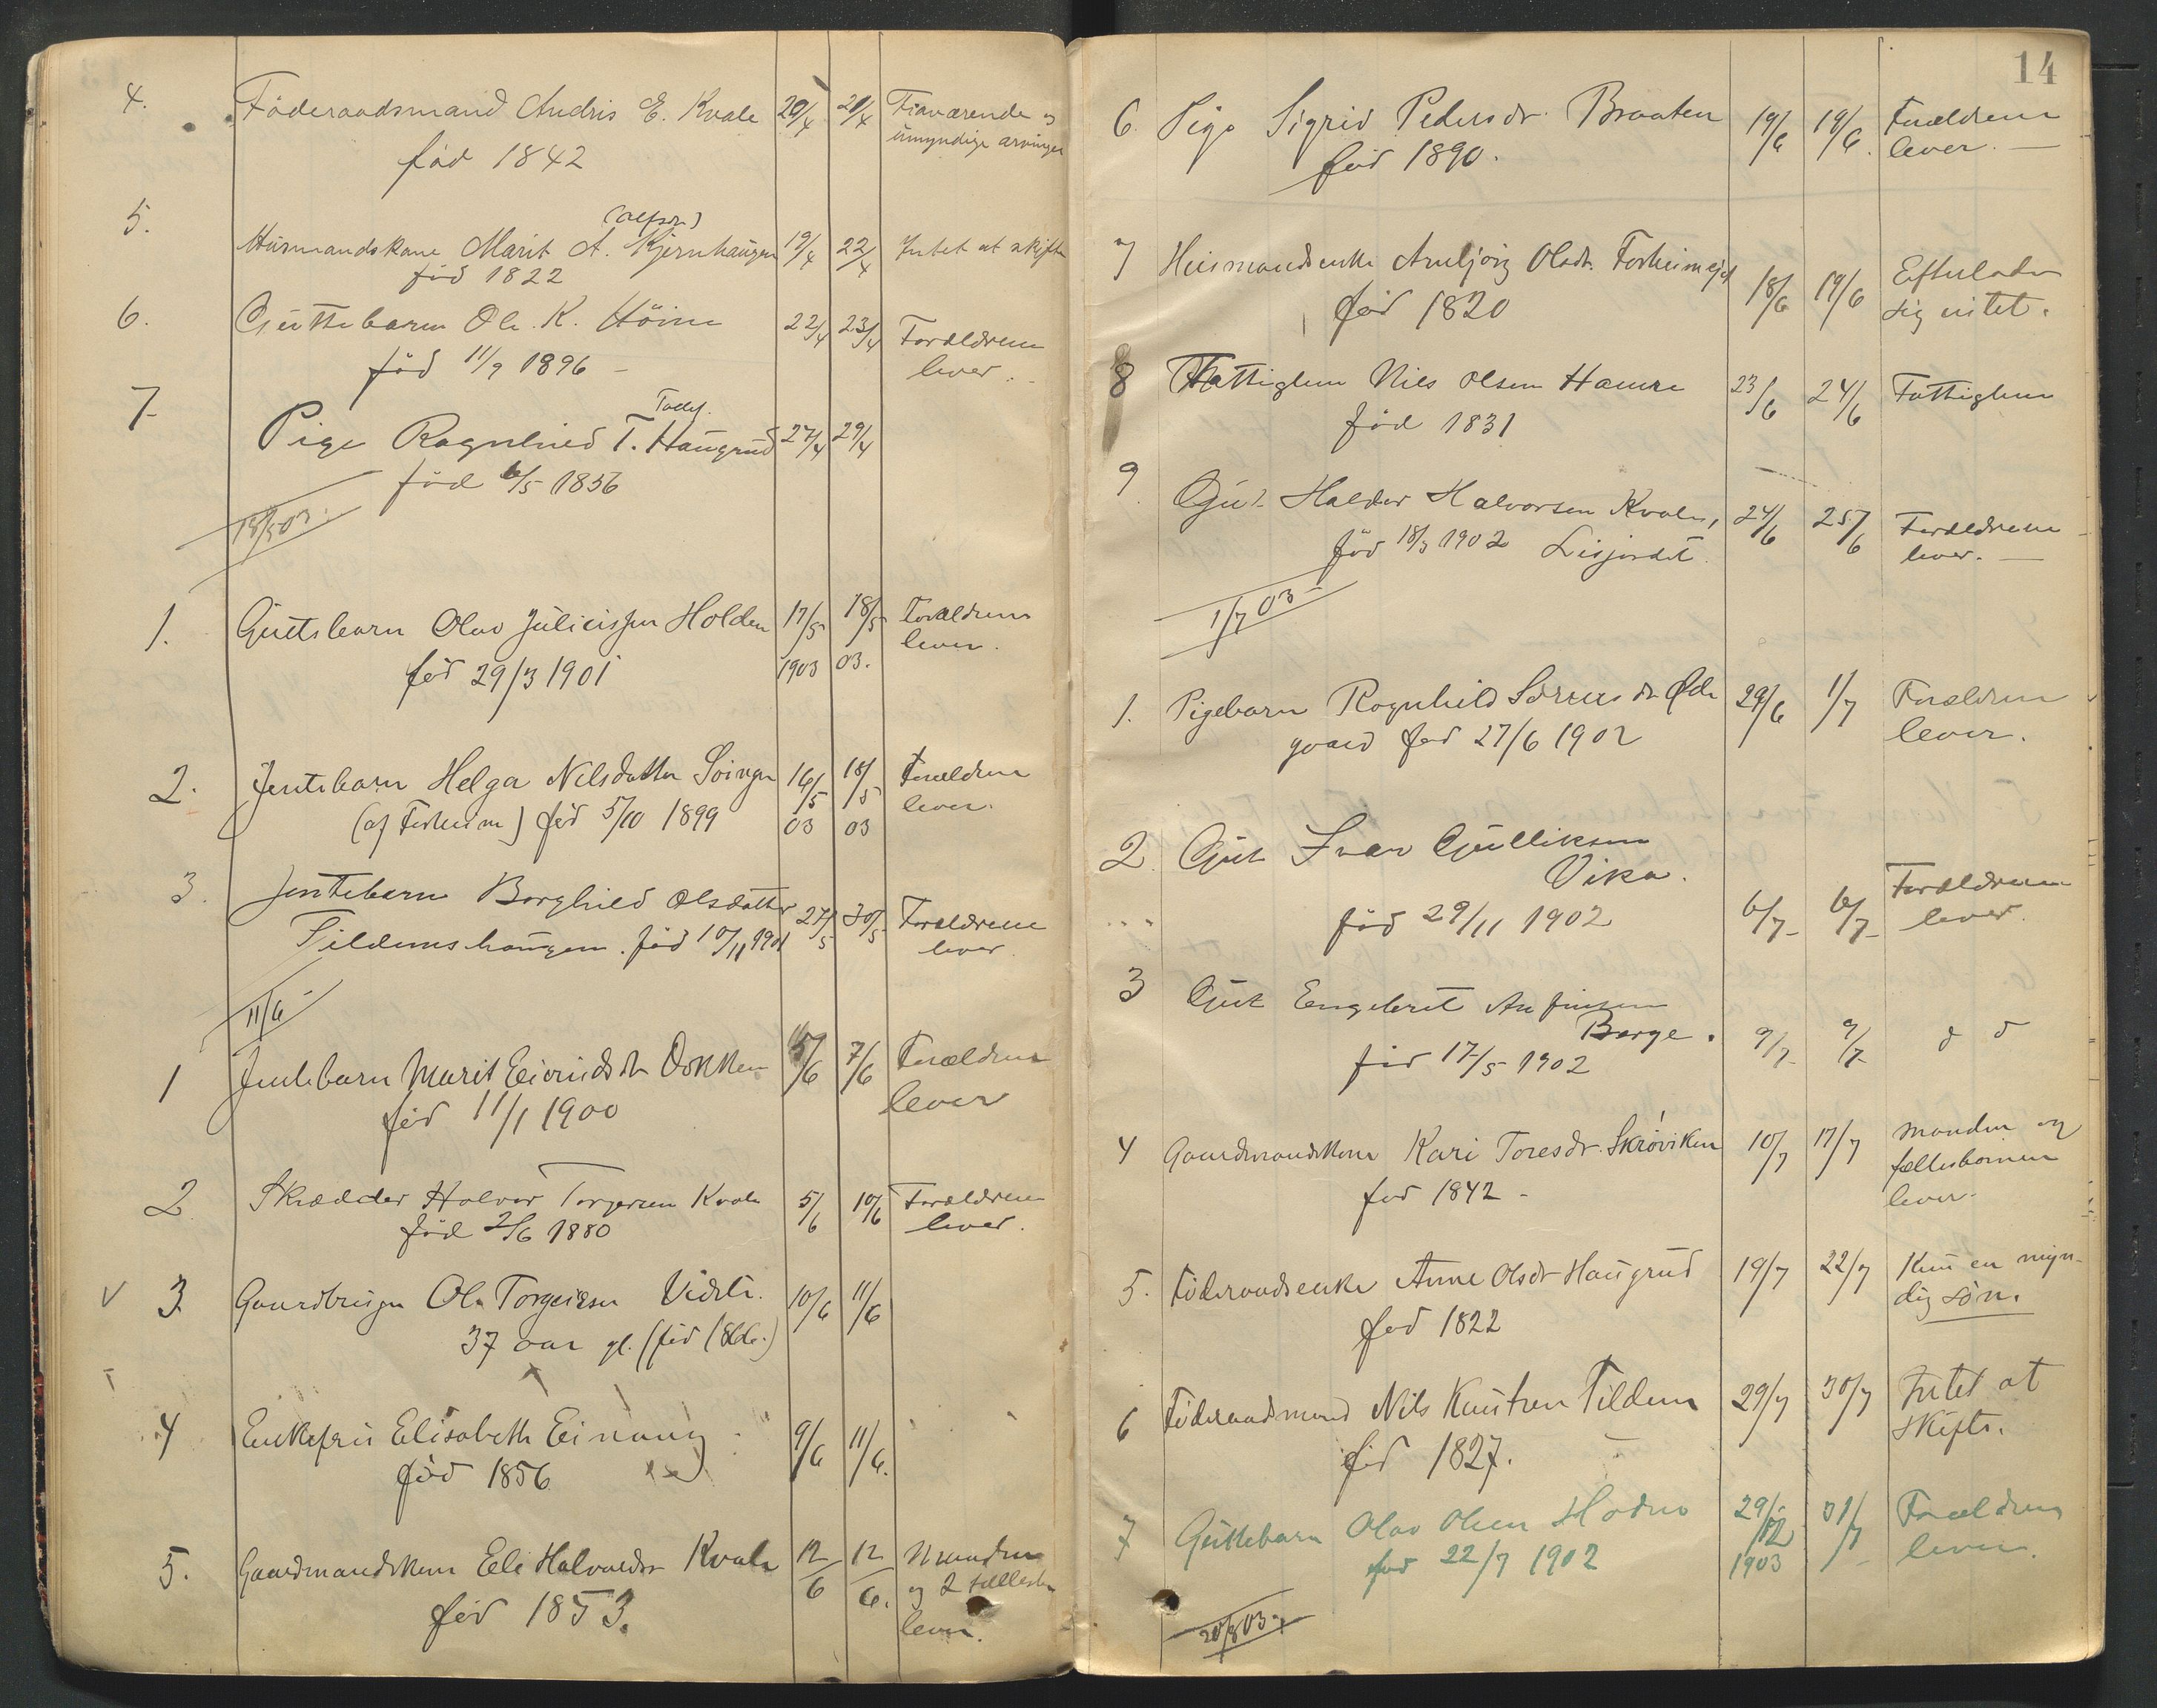 4. Föderaadsmand Andris E. Kvale 20/4 21/4 Fraværende og
umyndige arvinger
föd 1842
5. (Alfsdr)
Husmandskone Marit A. Kjernhaugen 19/4 22/4 Intet at skifte
föd 1822
6. Guttebarn Ole K. Höine 22/4 23/4 Forældrene
föd 11/9 1896 - lever.
7. Pige Ragnhild T. Haugrud 27/4 29/4
föd 6/5 1856
18/5 03.
1. Guttebarn Olav Juliussen Holden 17/5 18/5 Forældrene
lever.
föd 29/3 1901 1903 03.
2. Jentebarn Helga Nilsdatter 16/5 18/5 Forældrene
lever.
(af Forheim) föd 5/10 1899 03 03
3. Jentebarn Borghild Olsdatter 27/5 30/5 Forældrene
Tildemshaugen. föd 10/11 1901 lever.
11/6
1 Jentebarn Marit Eivindsdr Dokken 5/6 7/6 Forældrene
föd 11/1 1900 lever
2 Skrædder Halvor Torgersen Kvale 5/6 10/6 Forældrene
föd 2/6 1880 lever.
V 3. Gaardbruger Ole Torgersen Vidste. 10/6 11/6
37 aar gl. (föd
4 Enkefru Elisabeth Einang 9/6 11/6.
föd 1856
5. Gaardmandskone Eli Halvorsdr Kvale 12/6 12/6. Manden
og 2
föd 1853. lever.
14
6. Pige Sigrid Pedersdr. Braaten 19/6 19/6. Forældrene
föd 1890. lever. —
7 Husmandsenke Ambjörg Olsdr. Forheimejet 18/6 19/6 Efterlader
föd 1820 sig intet.
8 Fattiglem Nils Olsen Hamre 23/6 24/6 Fattiglem
föd 1831
9. Gut Haldor Halvorsen Kvale, 24/6 25/6 Forældrene
föd 18/3 1902 Lisjordet lever. —
1/7 03
1. Pigebarn Ragnhild Sörensdr Öde 29/6 1/7 Forældrene
gaard föd 27/6 1902 lever.
2. Gut Ivar Gulliksen
Vika.
föd 29/11 1902 6/7 6/7 Forældrene
lever.
3 Gut Engebret Anfinsen
Berge. 9/7 9/7 d d
föd 17/5 1902
4 Gaardmandskone Kari Toresdr. Skröviken 10/7 17/7 Manden og
föd 1842 - fællesbörnene
lever.
5. Föderaadsenke Anne Olsdr Haugrud 19/7 22/7 Kun en myn-
föd 1822 dig sön.
6 Föderaadmand Nils Knutsen Tildem 29/7 30/7 Intet at
föd 1827. skifte.
7 Guttebarn Olav Olsen Hadne 29/12 31/7 Forældrene
föd 22/7 1902 1903 lever.
20/8 03.